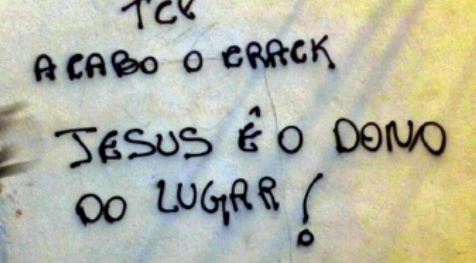 TCP
ACABO O CRACK
JESUS Ê O DONO
DO LUGAR!